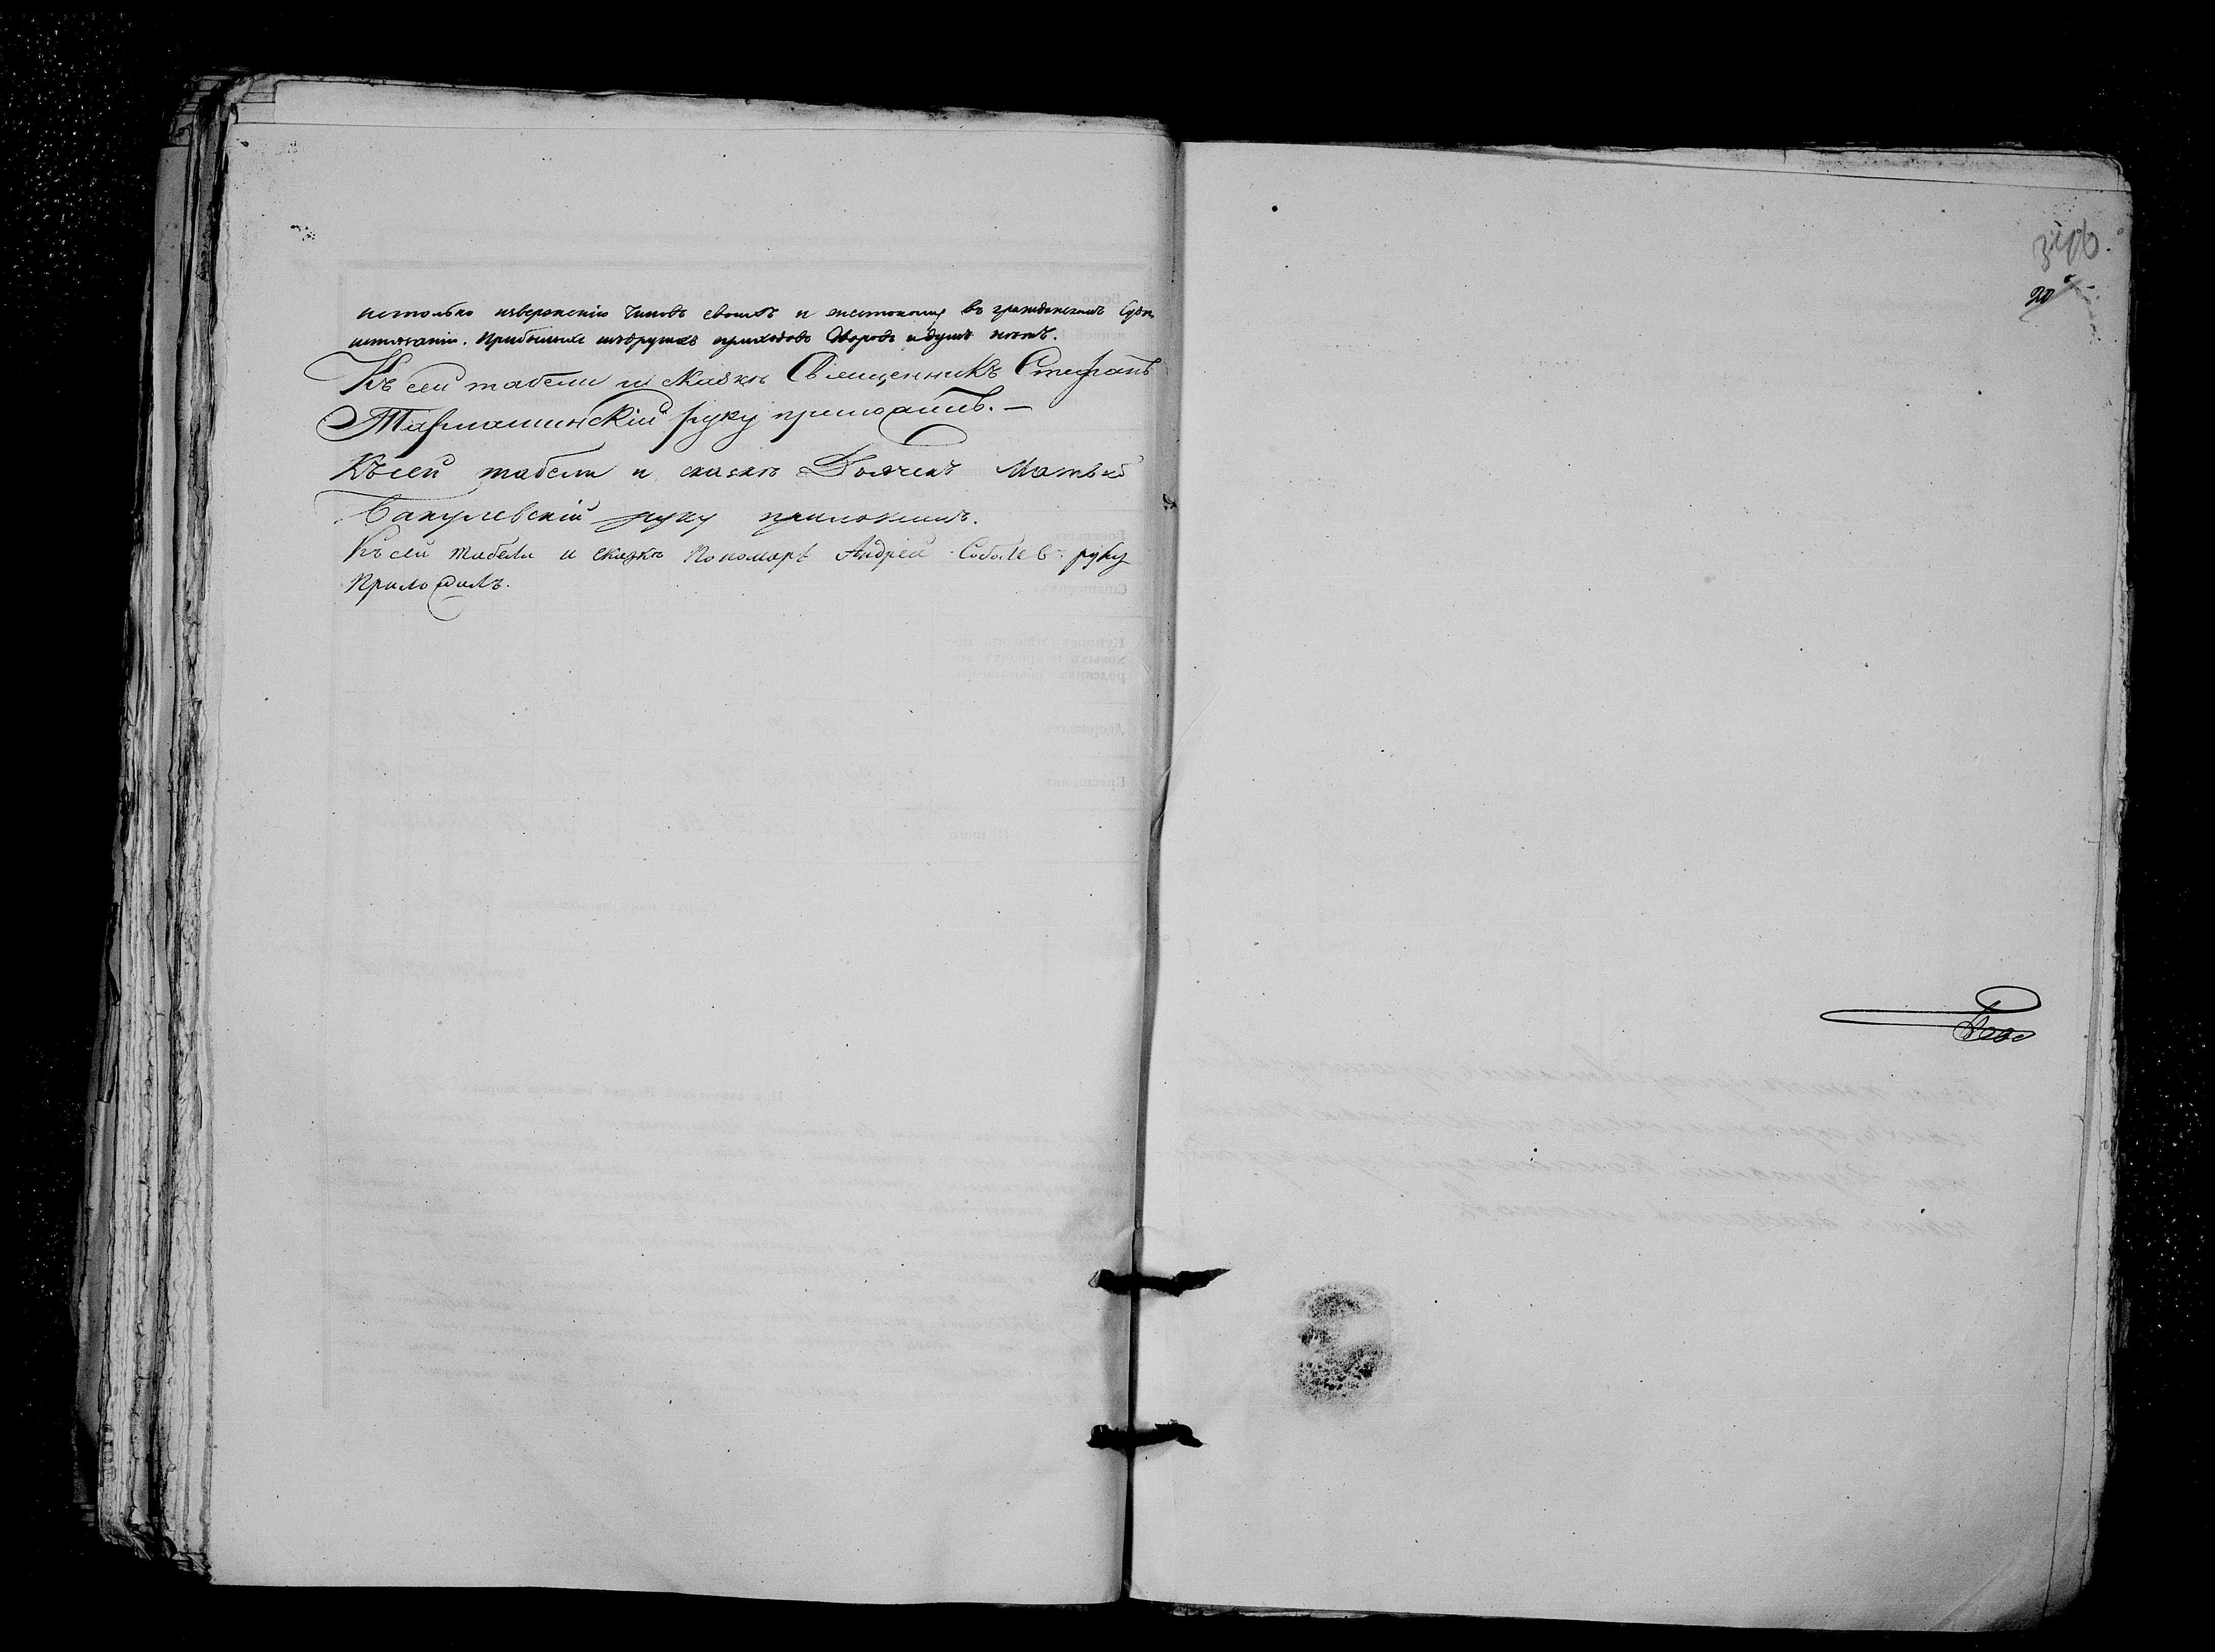 нетолько извержению чиновъ своихъ и жестокому въ гражданскомъ Судѣ
истязанию. Прибылыхъ изъдругихъ приходовъ дворовъ идушъ нѣтъ.
Къ сей табели и сказкѣ Священникъ Стефанъ
руку приложилъ. —
Къ сей табели и сказкѣ Дьячекъ Матвѣй
Бакулевскій руку приложилъ.
Къ сей табели и сказкѣ Пономарь Андрей Соболев руку
Приложилъ.
346.